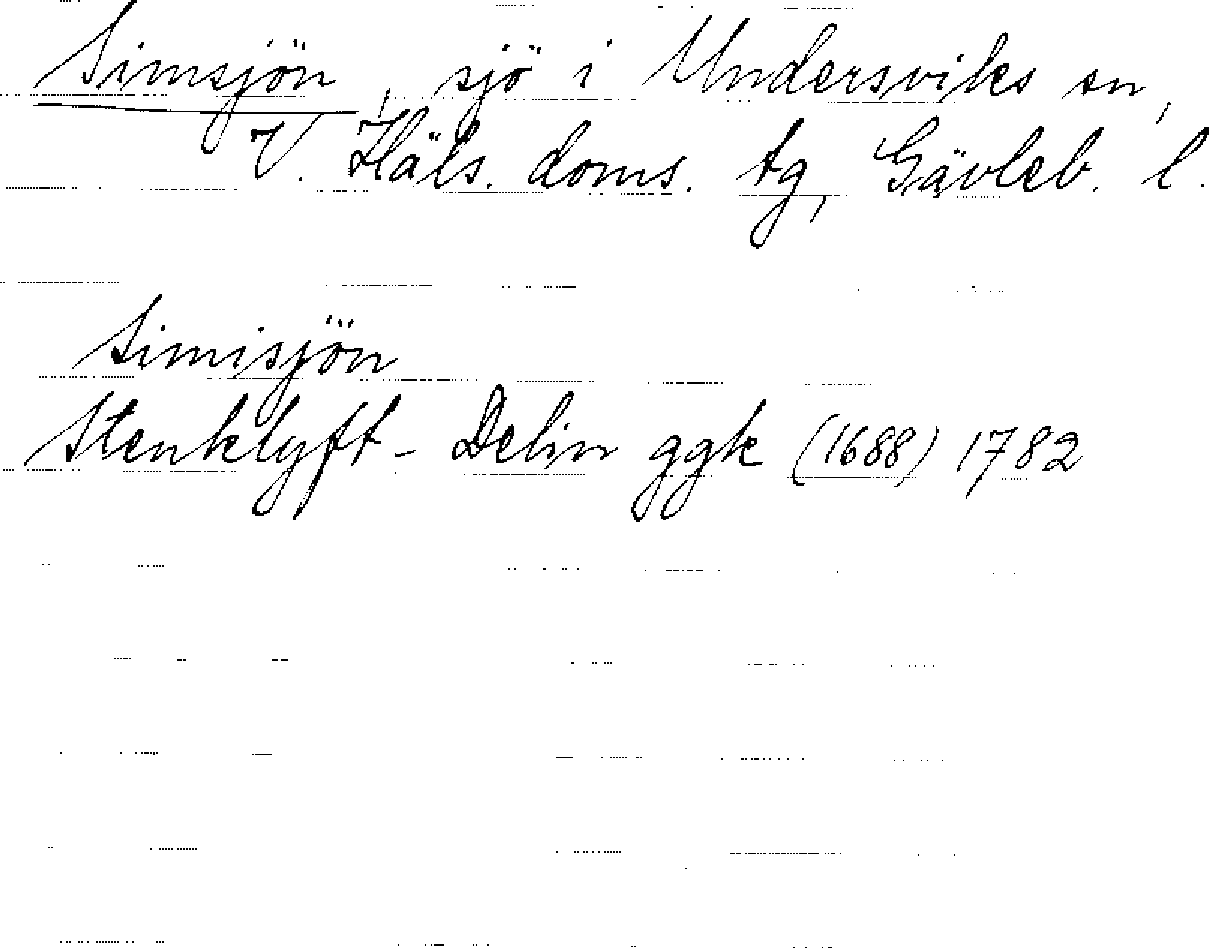 Simsjön, sjö i Undersviks sn,
V. Häls. doms. tg, Gävleb. l.
Simisjön
Stenklyft- Delin ggk (1688) 1782